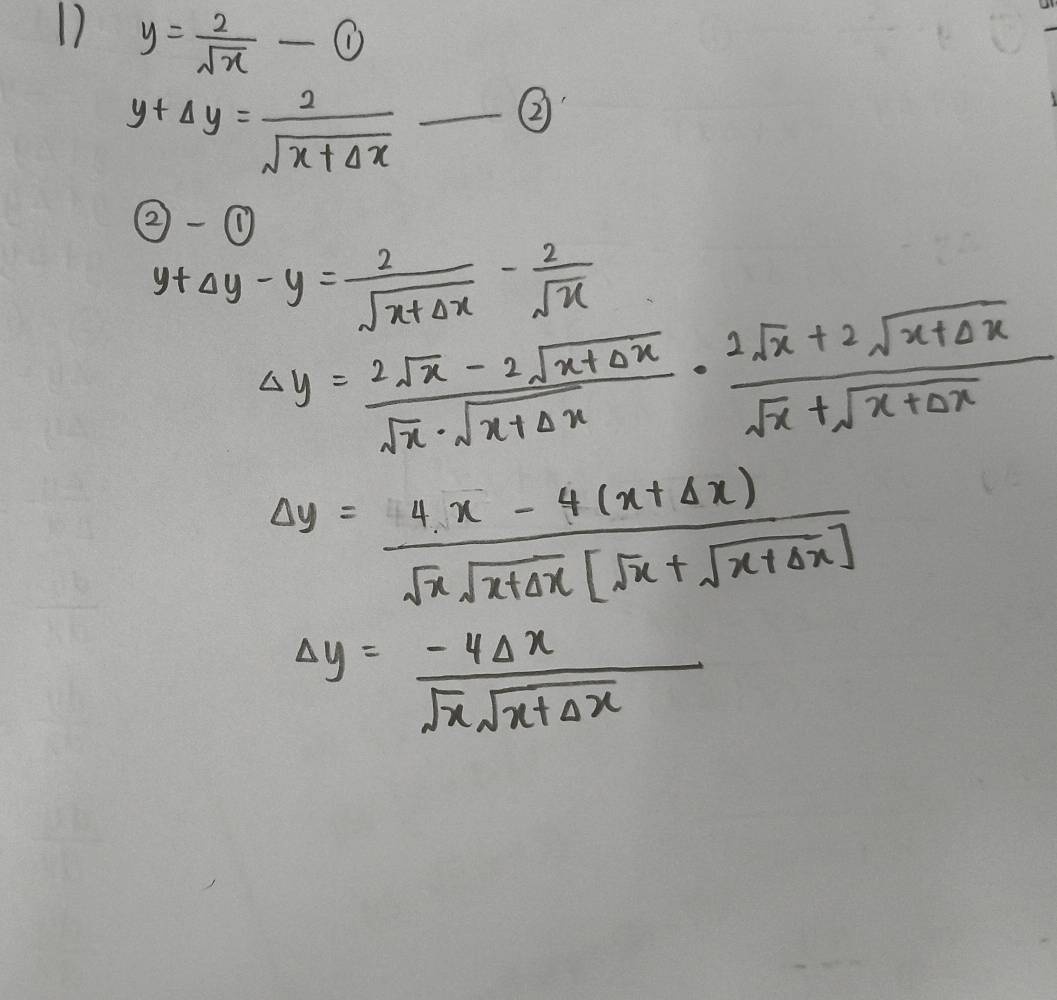 1) y = 2/√x — ①
y + Δy = 2/√(x + Δx) — ②
② - ①
y + Δy - y = 2/√(x + Δx) - 2/√x
Δy = (2√x - 2√(x + Δx))/(√x · √(x + Δx)) · (2√x + 2√(x + Δx))/(√x + √(x + Δx))
Δy = (4x - 4(x + Δx))/(√x √(x + Δx) [√x + √(x + Δx)])
Δy = (-4Δx)/(√x √(x + Δx))